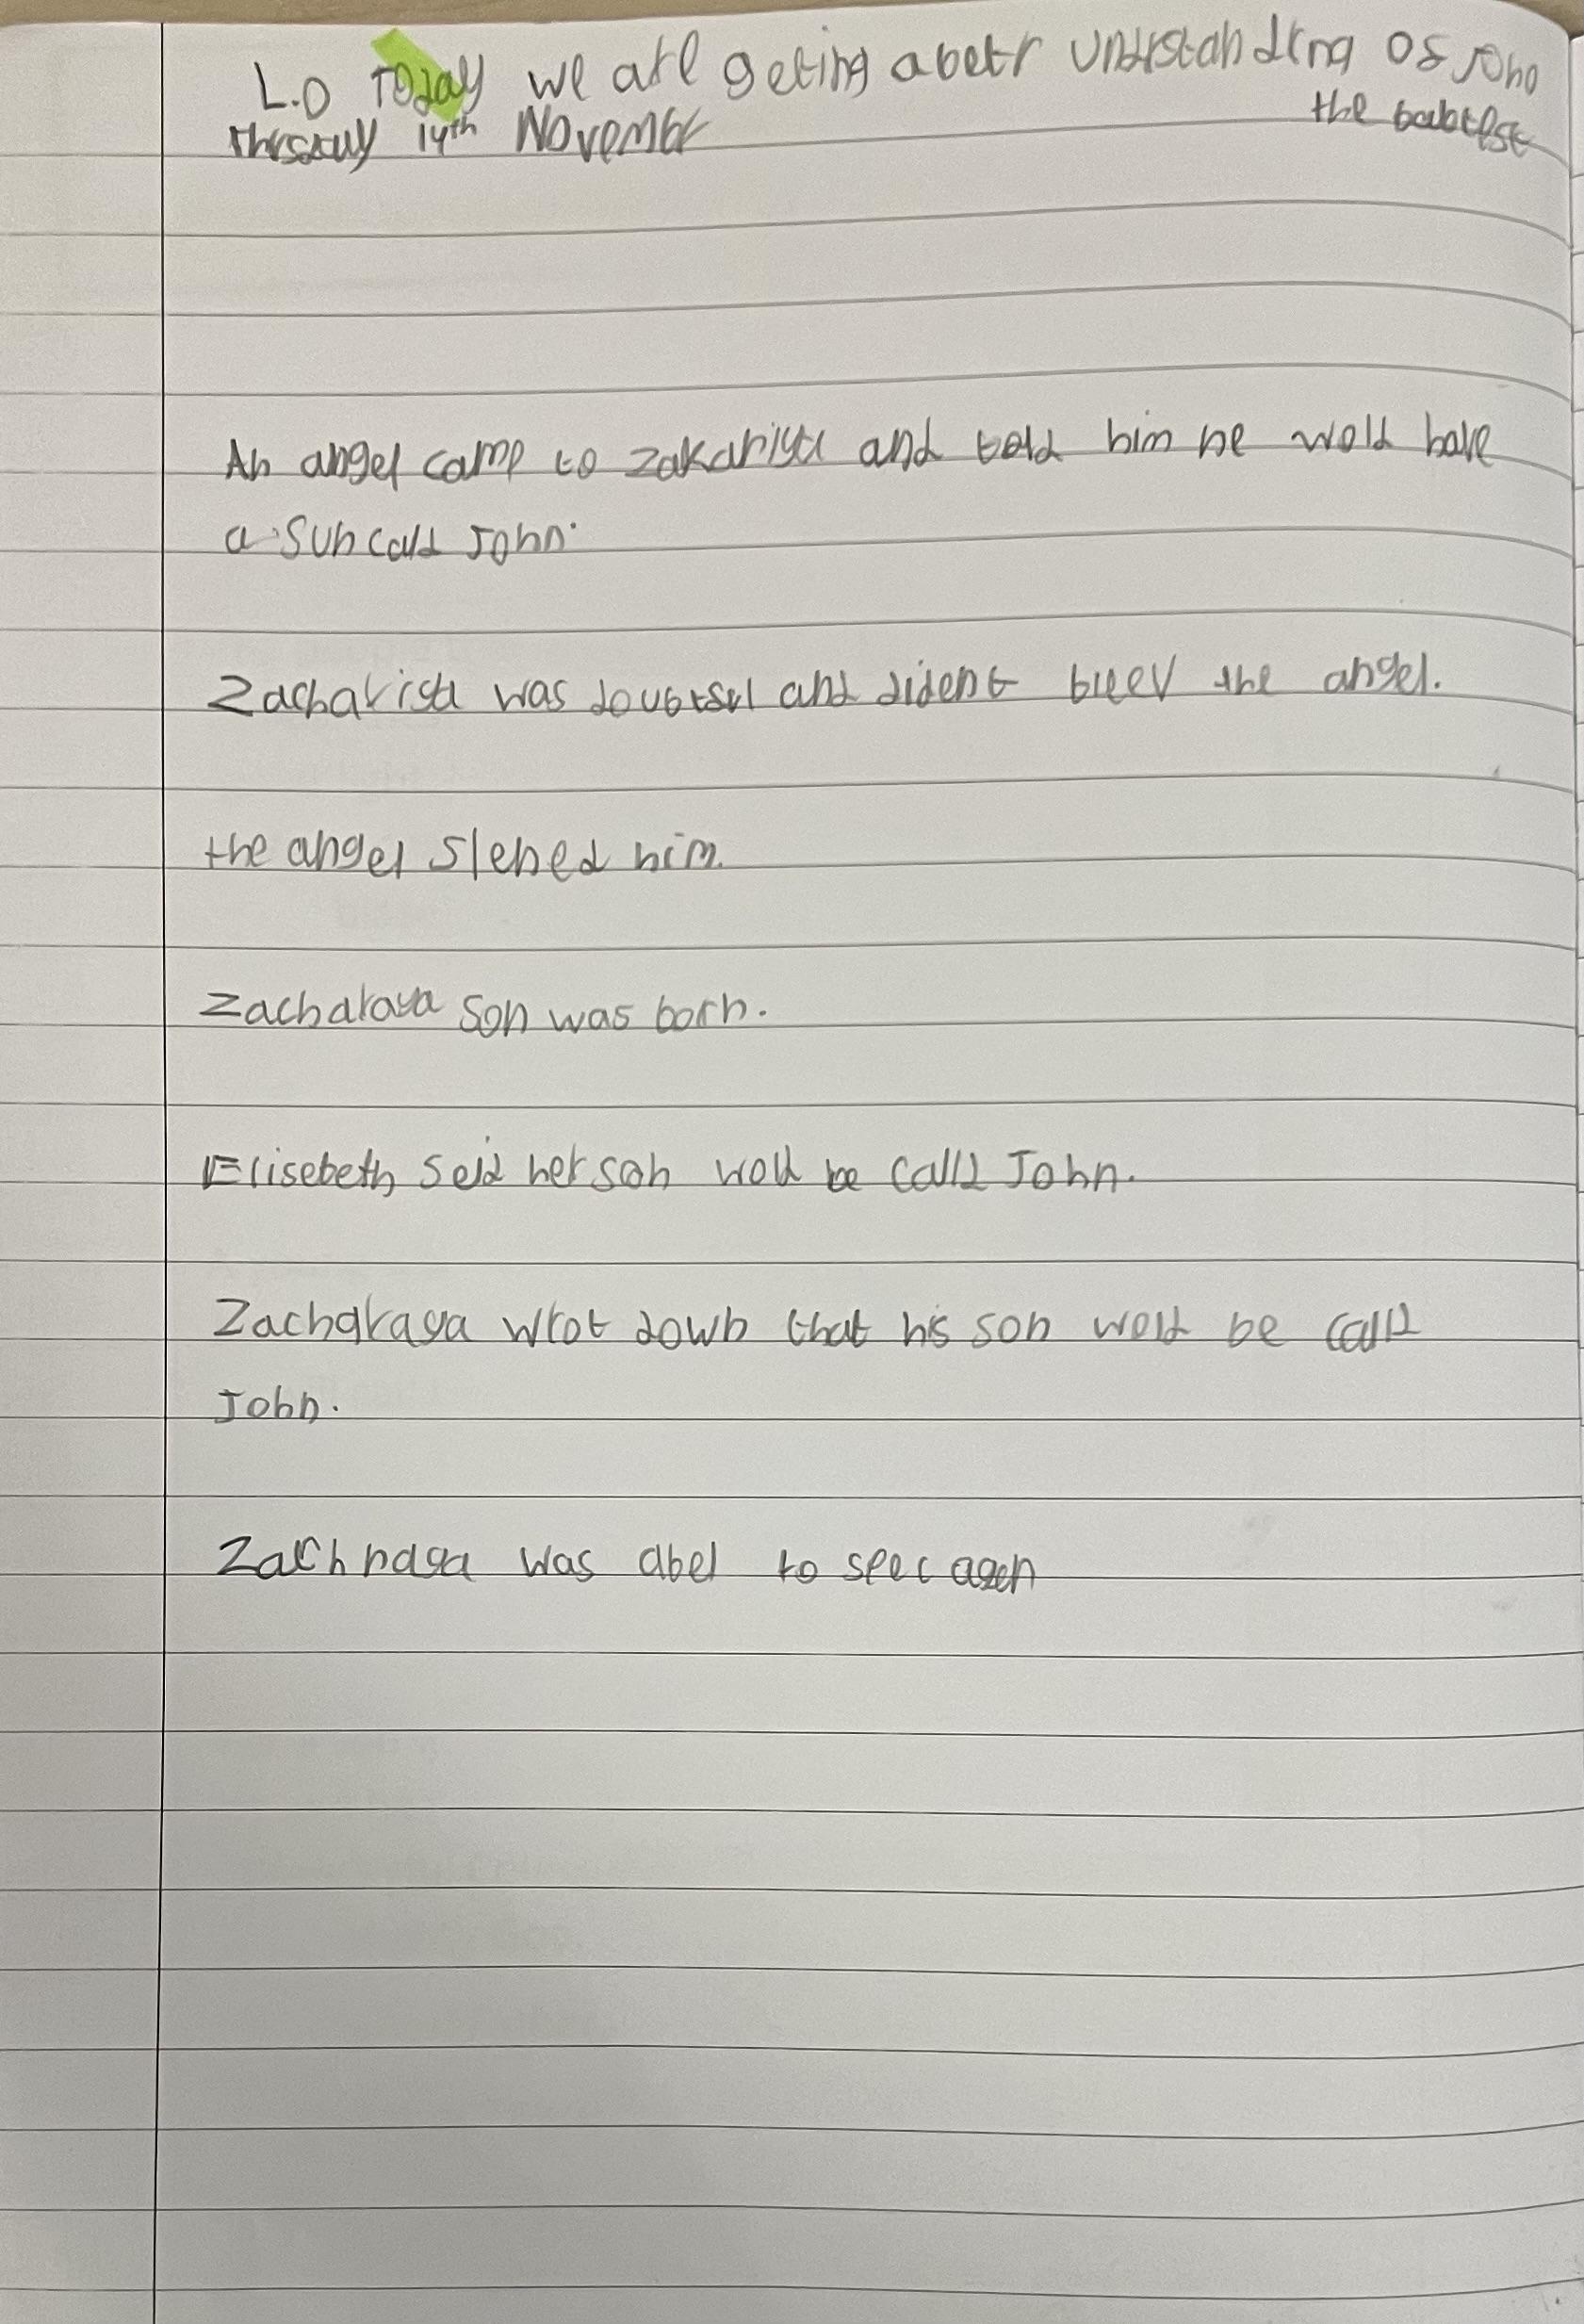 L.O Today we are geting a betr understanding of John
the babtist
thrsday 14th November
An angel came to zakariya and told him he wold have
a sun calld John.
Zachariya was doubtful and dident bleev the angel.
the angel slened him.
Zacharaya son was born.
Elisebeth seid her son wold be calld John.
Zacharaya wrot down that his son wold be calld
John.
Zachraya was abel to spec agen